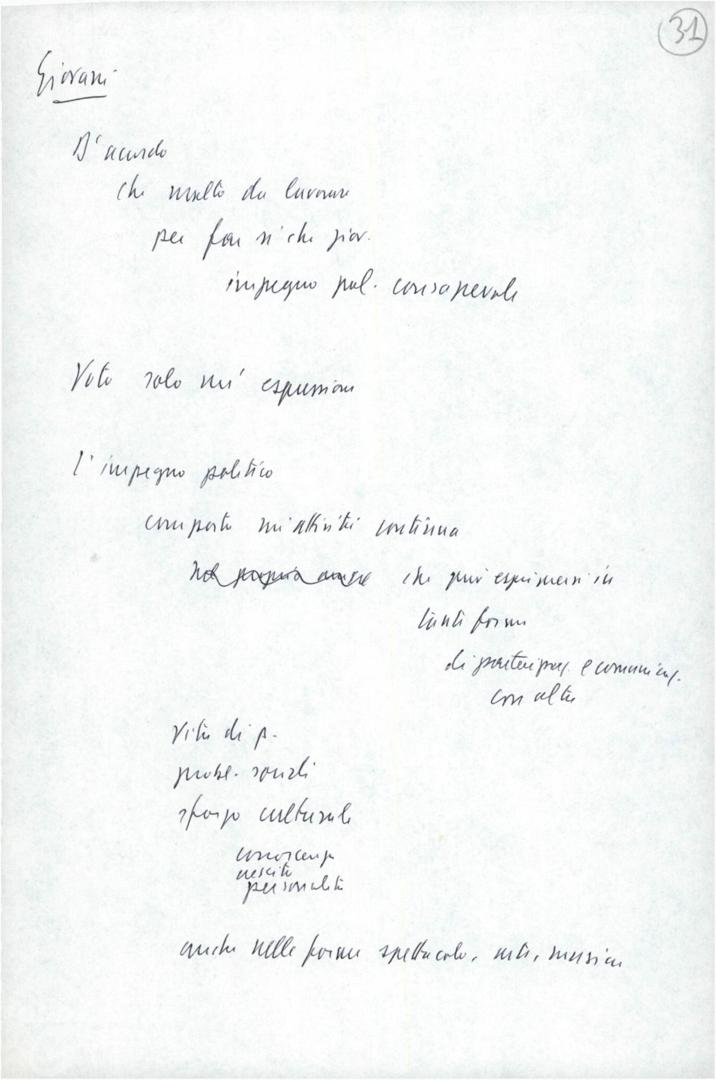 31
Giovani
D'accordo
che molto da lavorare
per far sì che giov.
impegno pol. consapevole
Voto solo un' espressione
l'impegno politico
comporta un'attività continua
che può esprimersi in
tante forme
di partecipaz. e comunicaz.
con altri
Vita di p.
probl. sociali
sforzo culturale
conoscenza
crescita
personalità
anche nelle forme spettacolo, arti, musica